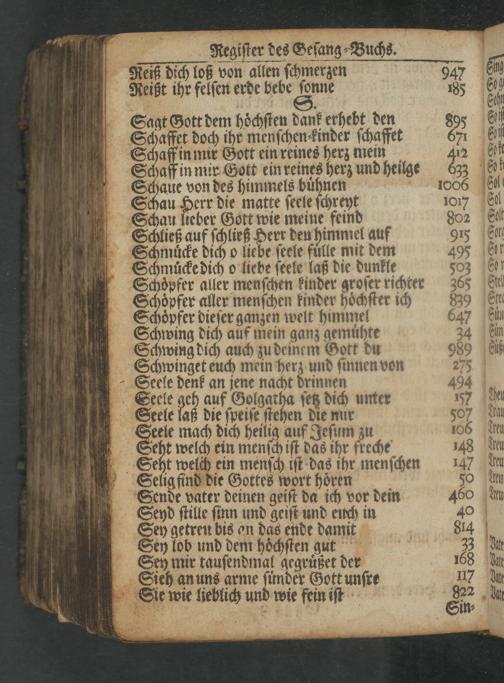 Register des Gesang-Buchs.
Reiß dich loß von allen schmerzen 947
Reißt ihr felsen erde bebe sonne 185
S.
Sagt Gott dem höchsten dank erhebt den 895
Schaffet doch ihr menschen-kinder schaffet 671
Schaff in mir Gott ein reines herz mein 412
Schaff in mir Gott ein reines herz und heilge 633
Schaue von des himmels bühnen 1006
Schau Herr die matte seele schreyt 1017
Schau lieber Gott wie meine feind 802
Schließ auf schließ Herr den himmel auf 915
Schmücke dich o liebe seele fülle mit dem 495
Schmücke dich o liebe seele laß die dunkle 503
Schöpfer aller menschen kinder groser richter 365
Schöpfer aller menschen kinder höchster ich 839
Schöpfer dieser ganzen welt himmel 647
Schwing dich auf mein ganz gemühte 34
Schwing dich auch zu deinem Gott du 989
Schwinget euch mein herz und sinnen von 275
Seele denk an jene nacht drinnen 494
Seele geh auf Golgatha setz dich unter 157
Seele laß die speise stehen die nur 507
Seele mach dich heilig auf Jesum zu 106
Seht welch ein mensch ist das ihr freche 148
Seht welch ein mensch ist das ihr menschen 147
Selig sind die Gottes wort hören 50
Sende vater deinen geist da ich vor dein 460
Seyd stille sinn und geist und euch in 40
Sey getreu bis an das ende damit 814
Sey lob und dem höchsten gut 33
Sey mir tausendmal gegrüßet der 168
Sieh an uns arme sünder Gott unsre 117
Sie wie lieblich und wie fein ist 822
Sin-